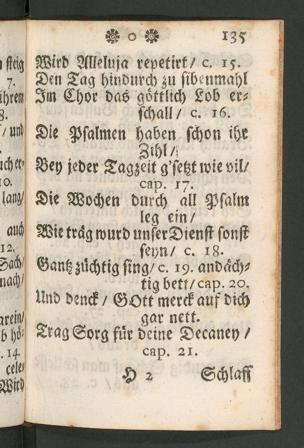 ❀ o ❀ 135
Wird Alleluja repetirt / c. 15.
Den Tag hindurch zu sibenmahl
Im Chor das göttlich Lob er-
schall / c. 16.
Die Psalmen haben schon ihr
Zihl /
Bey jeder Tagzeit g'setzt wie vil /
cap. 17.
Die Wochen durch all Psalm
leg ein /
Wie träg wurd unser Dienst sonst
seyn / c. 18.
Gantz züchtig sing / c. 19. andäch-
tig bett / cap. 20.
Und denck / GOtt merck auf dich
gar nett.
Trag Sorg für deine Decaney /
cap. 21.
H 2 Schlaff